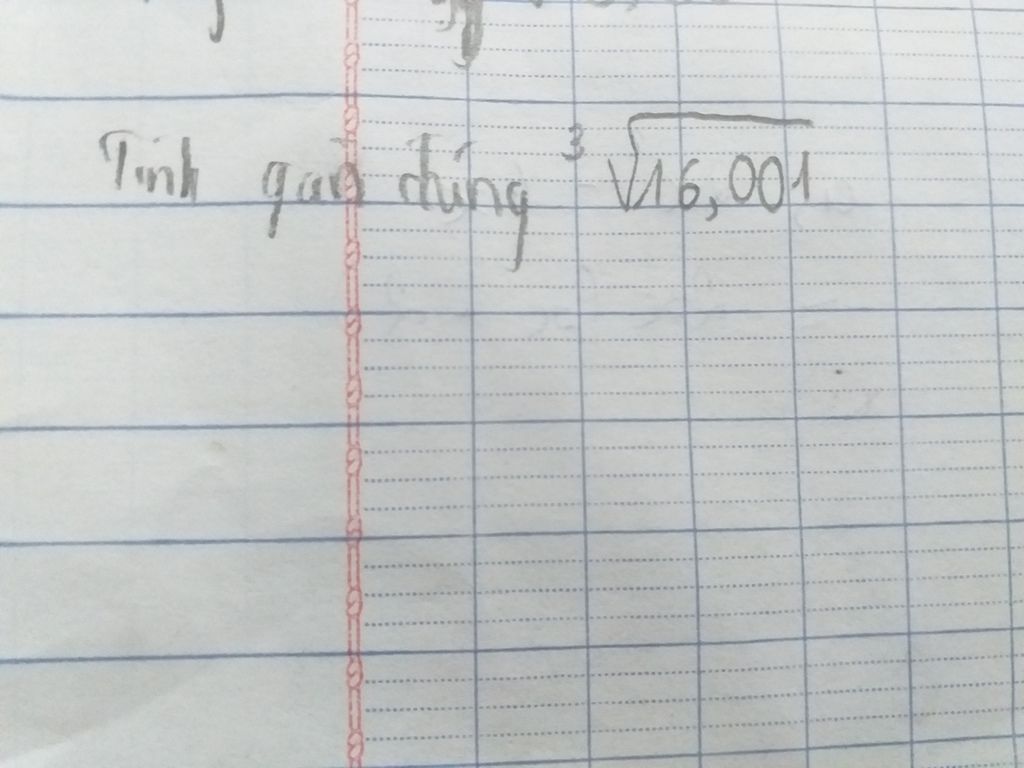 Tính gần đúng ³√16,001